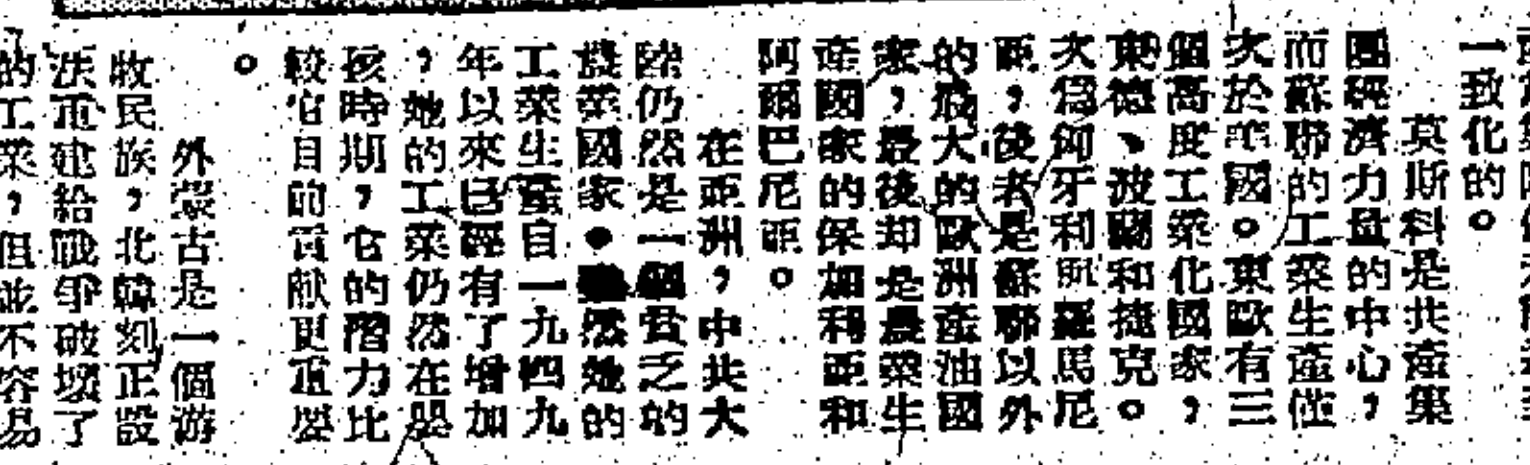 一致化的。
莫斯科是共產集
團經濟力量的中心，
而蘇聯的工業生產僅
次於美國。東歐有三
個高度工業化國家，
東德、波蘭和捷克。
次為匈牙利與羅馬尼
亞，後者是蘇聯以外
的最大的歐洲產油國
家，最後却是農業生
產國家的保加利亞和
阿爾巴尼亞。
在亞洲，中共大
陸仍然是一個貧乏的
農業國家。雖然她的
工業生產自一九四九
年以來已經有了增加
，她的工業仍然在嬰
孩時期，它的潛力比
較它目前的貢献更重要
。
外蒙古是一個游
牧民族，北韓刻正設
法重建給戰爭破壞了
的工業，但並不容易